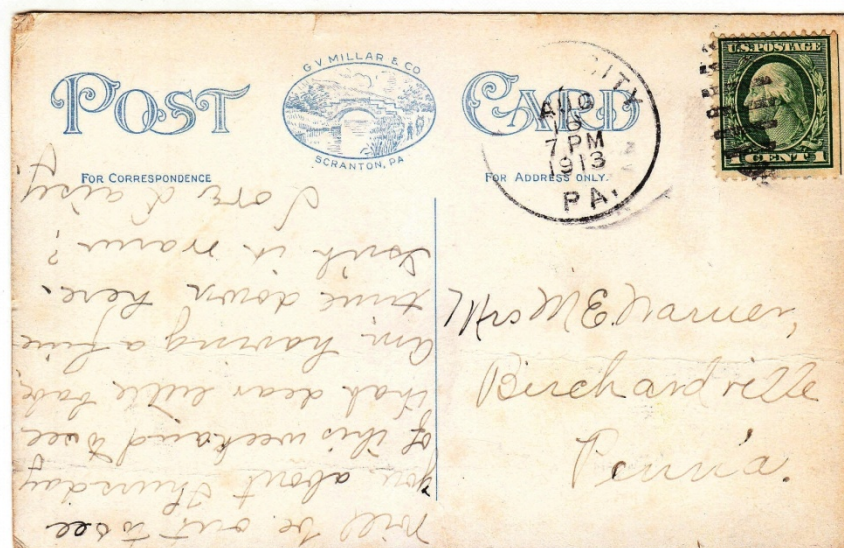 POST CARD
G V MILLAR & CO
SCRANTON, PA
FOR CORRESPONDENCE
FOR ADDRESS ONLY.
CITY
AUG
7 PM
1913
PA.
U.S. POSTAGE
1 CENT 1
Mrs M E Warner,
Birchardville
Penn'a.
Will be out to see
you about Thursday
of this week and to see
that dear little babe
Am having a fine
time down here.
Isn't it warm?
Love Daisy